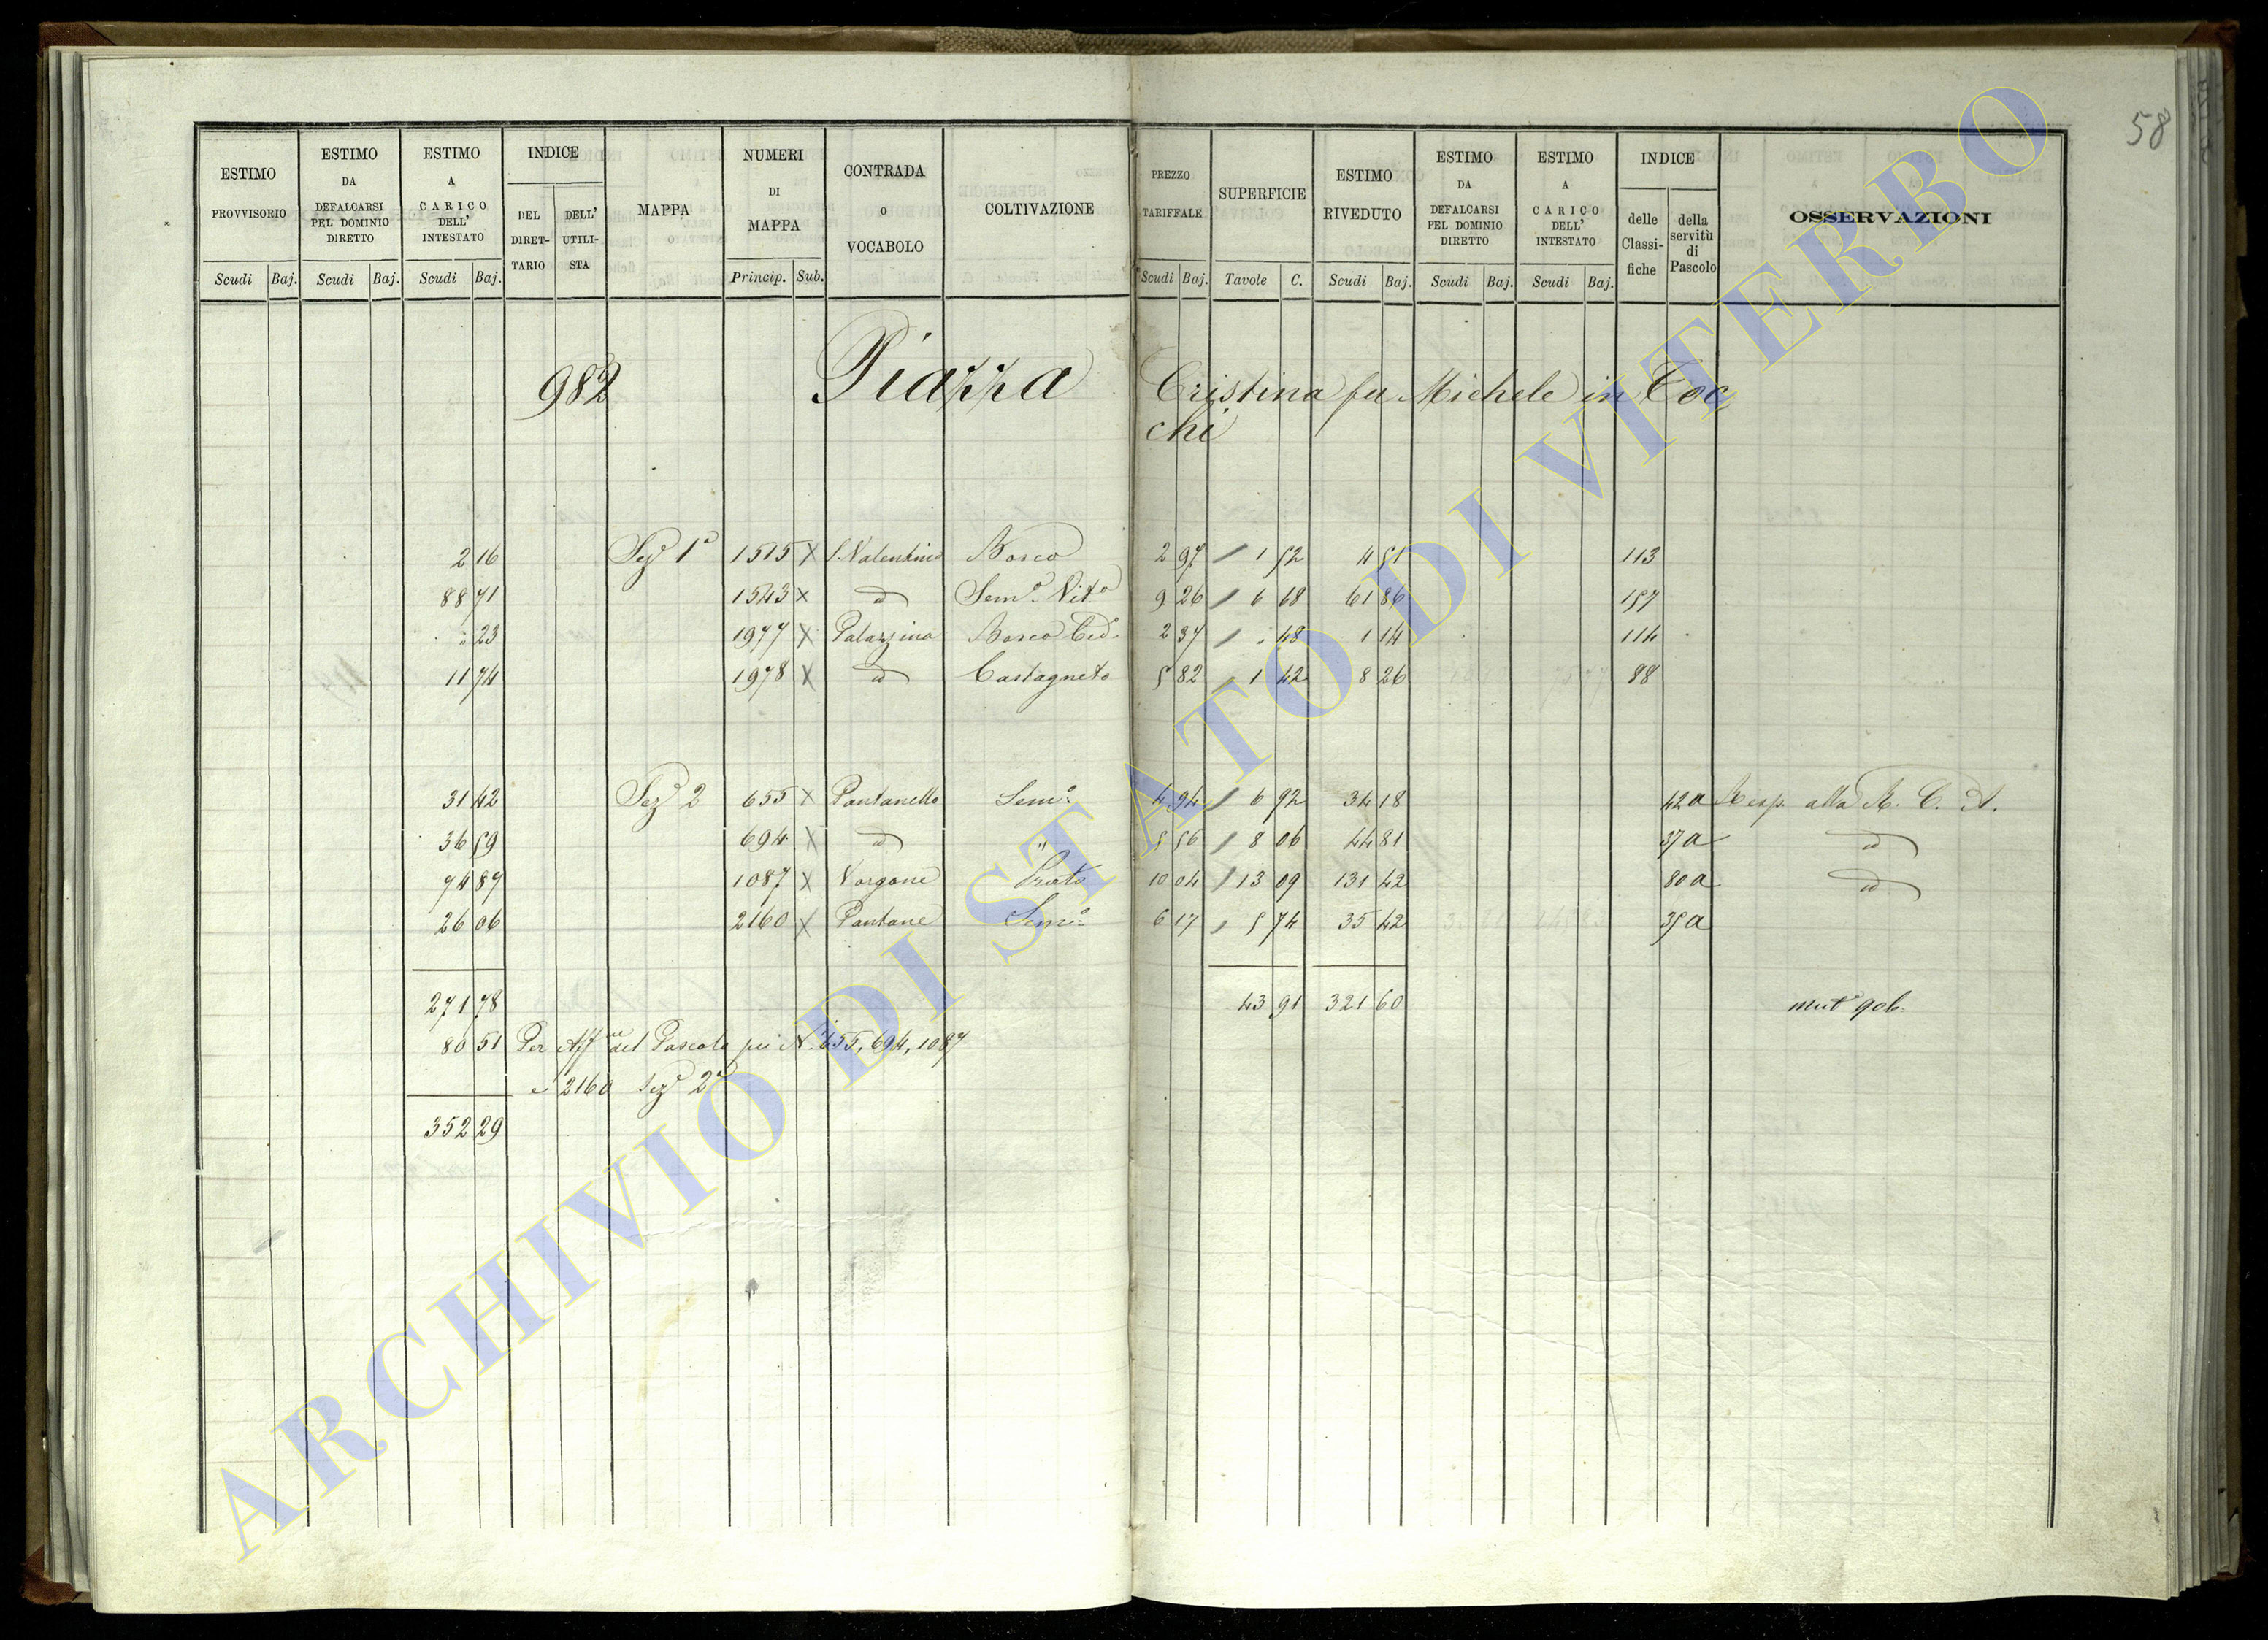 58
ESTIMO PROVVISORIO Scudi Baj. ESTIMO DA DEFALCARSI PEL DOMINIO DIRETTO Scudi Baj. ESTIMO A CARICO DELL' INTESTATO Scudi Baj. INDICE DEL DIRETTARIO DELL' UTILISTA MAPPA NUMERI DI MAPPA Princip. Sub. CONTRADA o VOCABOLO COLTIVAZIONE PREZZO TARIFFALE Scudi Baj. SUPERFICIE Tavole C. ESTIMO RIVEDUTO Scudi Baj. ESTIMO DA DEFALCARSI PEL DOMINIO DIRETTO Scudi Baj. ESTIMO A CARICO DELL' INTESTATO Scudi Baj. INDICE delle Classifiche della servitù di Pascolo OSSERVAZIONI
982 Piazza Cristina fu Michele in Toc
chi
2 16 Sezᵉ 1ᵃ 1515 X S. Valentino Bosco 2 97 / 1 52 4 51 113
88 71 1543 X id Semᵒ Vitᵒ 9 26 / 6 68 61 86 157
" 23 1977 X Palazzina Bosco Ced. 2 37 / . 48 1 14 114
11 74 1978 X id Castagneto 5 82 / 1 42 8 26 98
31 42 Sezᵉ 2 655 X Pantanello Semᵒ 4 94 / 6 92 34 18 42 a Resp. alla R. C. A.
36 59 694 X id " 5 56 / 8 06 44 81 37 a id
74 87 1087 X Vorgone Prato 10 04 / 13 09 131 42 80 a id
26 06 2160 X Pantane Semᵒ 6 17 / 5 74 35 42 35 a
271 78 43 91 321 60 mutᵉ 906.
80 51 Per Affᵘᵉ del Pascolo pei N. 655, 694, 1087
e 2160 Sezᵉ 2ᵃ
352 29
ARCHIVIO DI STATO DI VITERBO